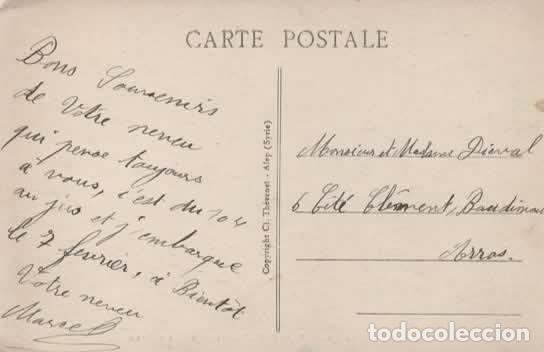 CARTE POSTALE
Bons Souvenirs
de Votre neveu
qui pense toujours
à vous, c'est du 104
au jus et j'embarque
le 7 février, à Bientôt
Votre neveu
Marcel
Copyright Cl. Thévenet - Alep (Syrie)
Monsieur et Madame Dierval
6 Cité Clément, Baudimont
Arras.
todocoleccion